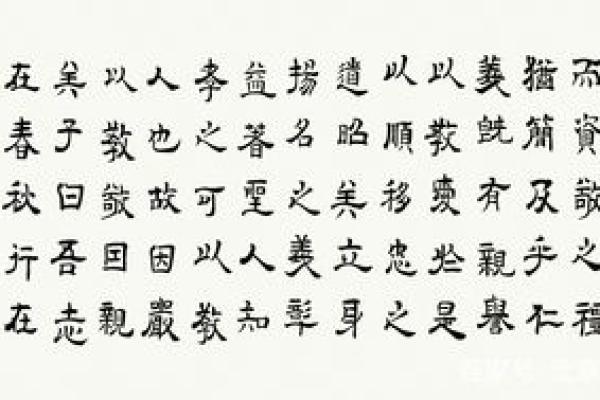 而資敬之禮
猶簡及乎仁
義既有親譽
以教愛於是
以順移忠之
道昭矣立身
揚名之義彰
益著聖人知
孝之可以教
人也故因嚴
以教敬囙親
矣子曰吾志
在春秋行在